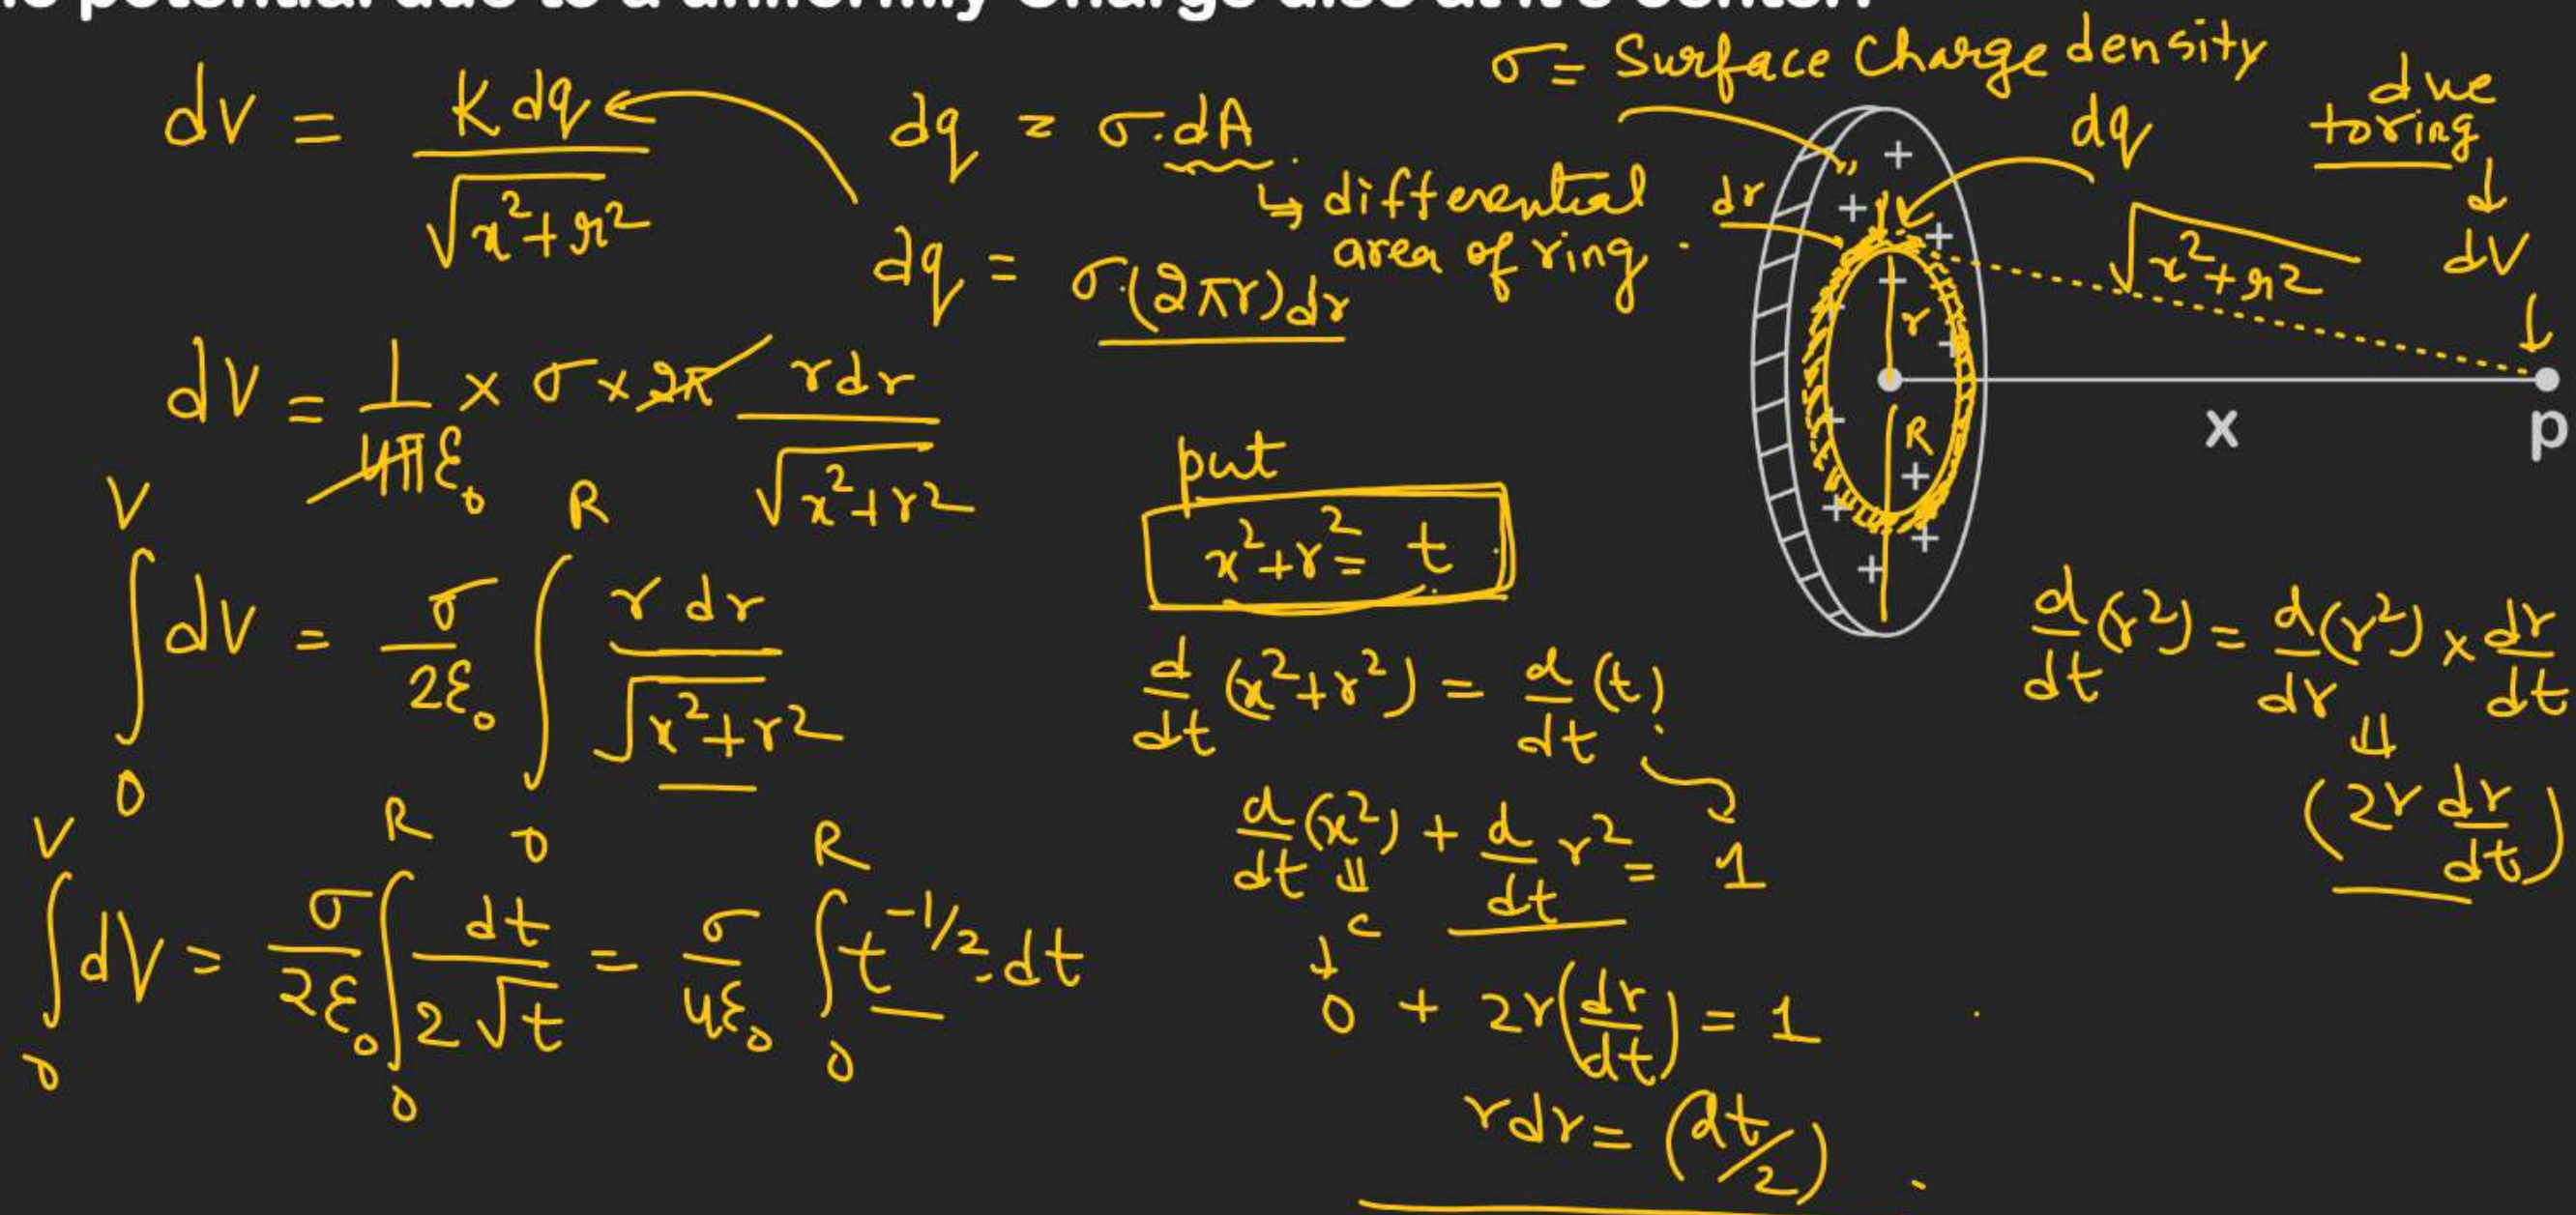 potential due to a uniformly Charge disc at it's center.
dV = K dq / √(x²+r²)
dq = σ.dA
↳ differential
area of ring.
dq = σ.(2πr)dr
σ = Surface Charge density
dr
dq
due
to ring
↓
dV
√(x²+r²)
r
R
x
p
dV = 1/4πε₀ × σ × 2π r dr / √(x²+r²)
∫₀^V dV = σ/2ε₀ ∫₀^R r dr / √(x²+r²)
∫₀^V dV = σ/2ε₀ ∫₀^R dt / 2√t = σ/4ε₀ ∫₀^R t^(-1/2).dt
put
x²+r² = t
d/dt (x²+r²) = d/dt (t)
d/dt (x²) + d/dt r² = 1
c
0 + 2r(dr/dt) = 1
rdr = (dt/2)
d/dt (r²) = d/dr (r²) × dr/dt
(2r dr/dt)